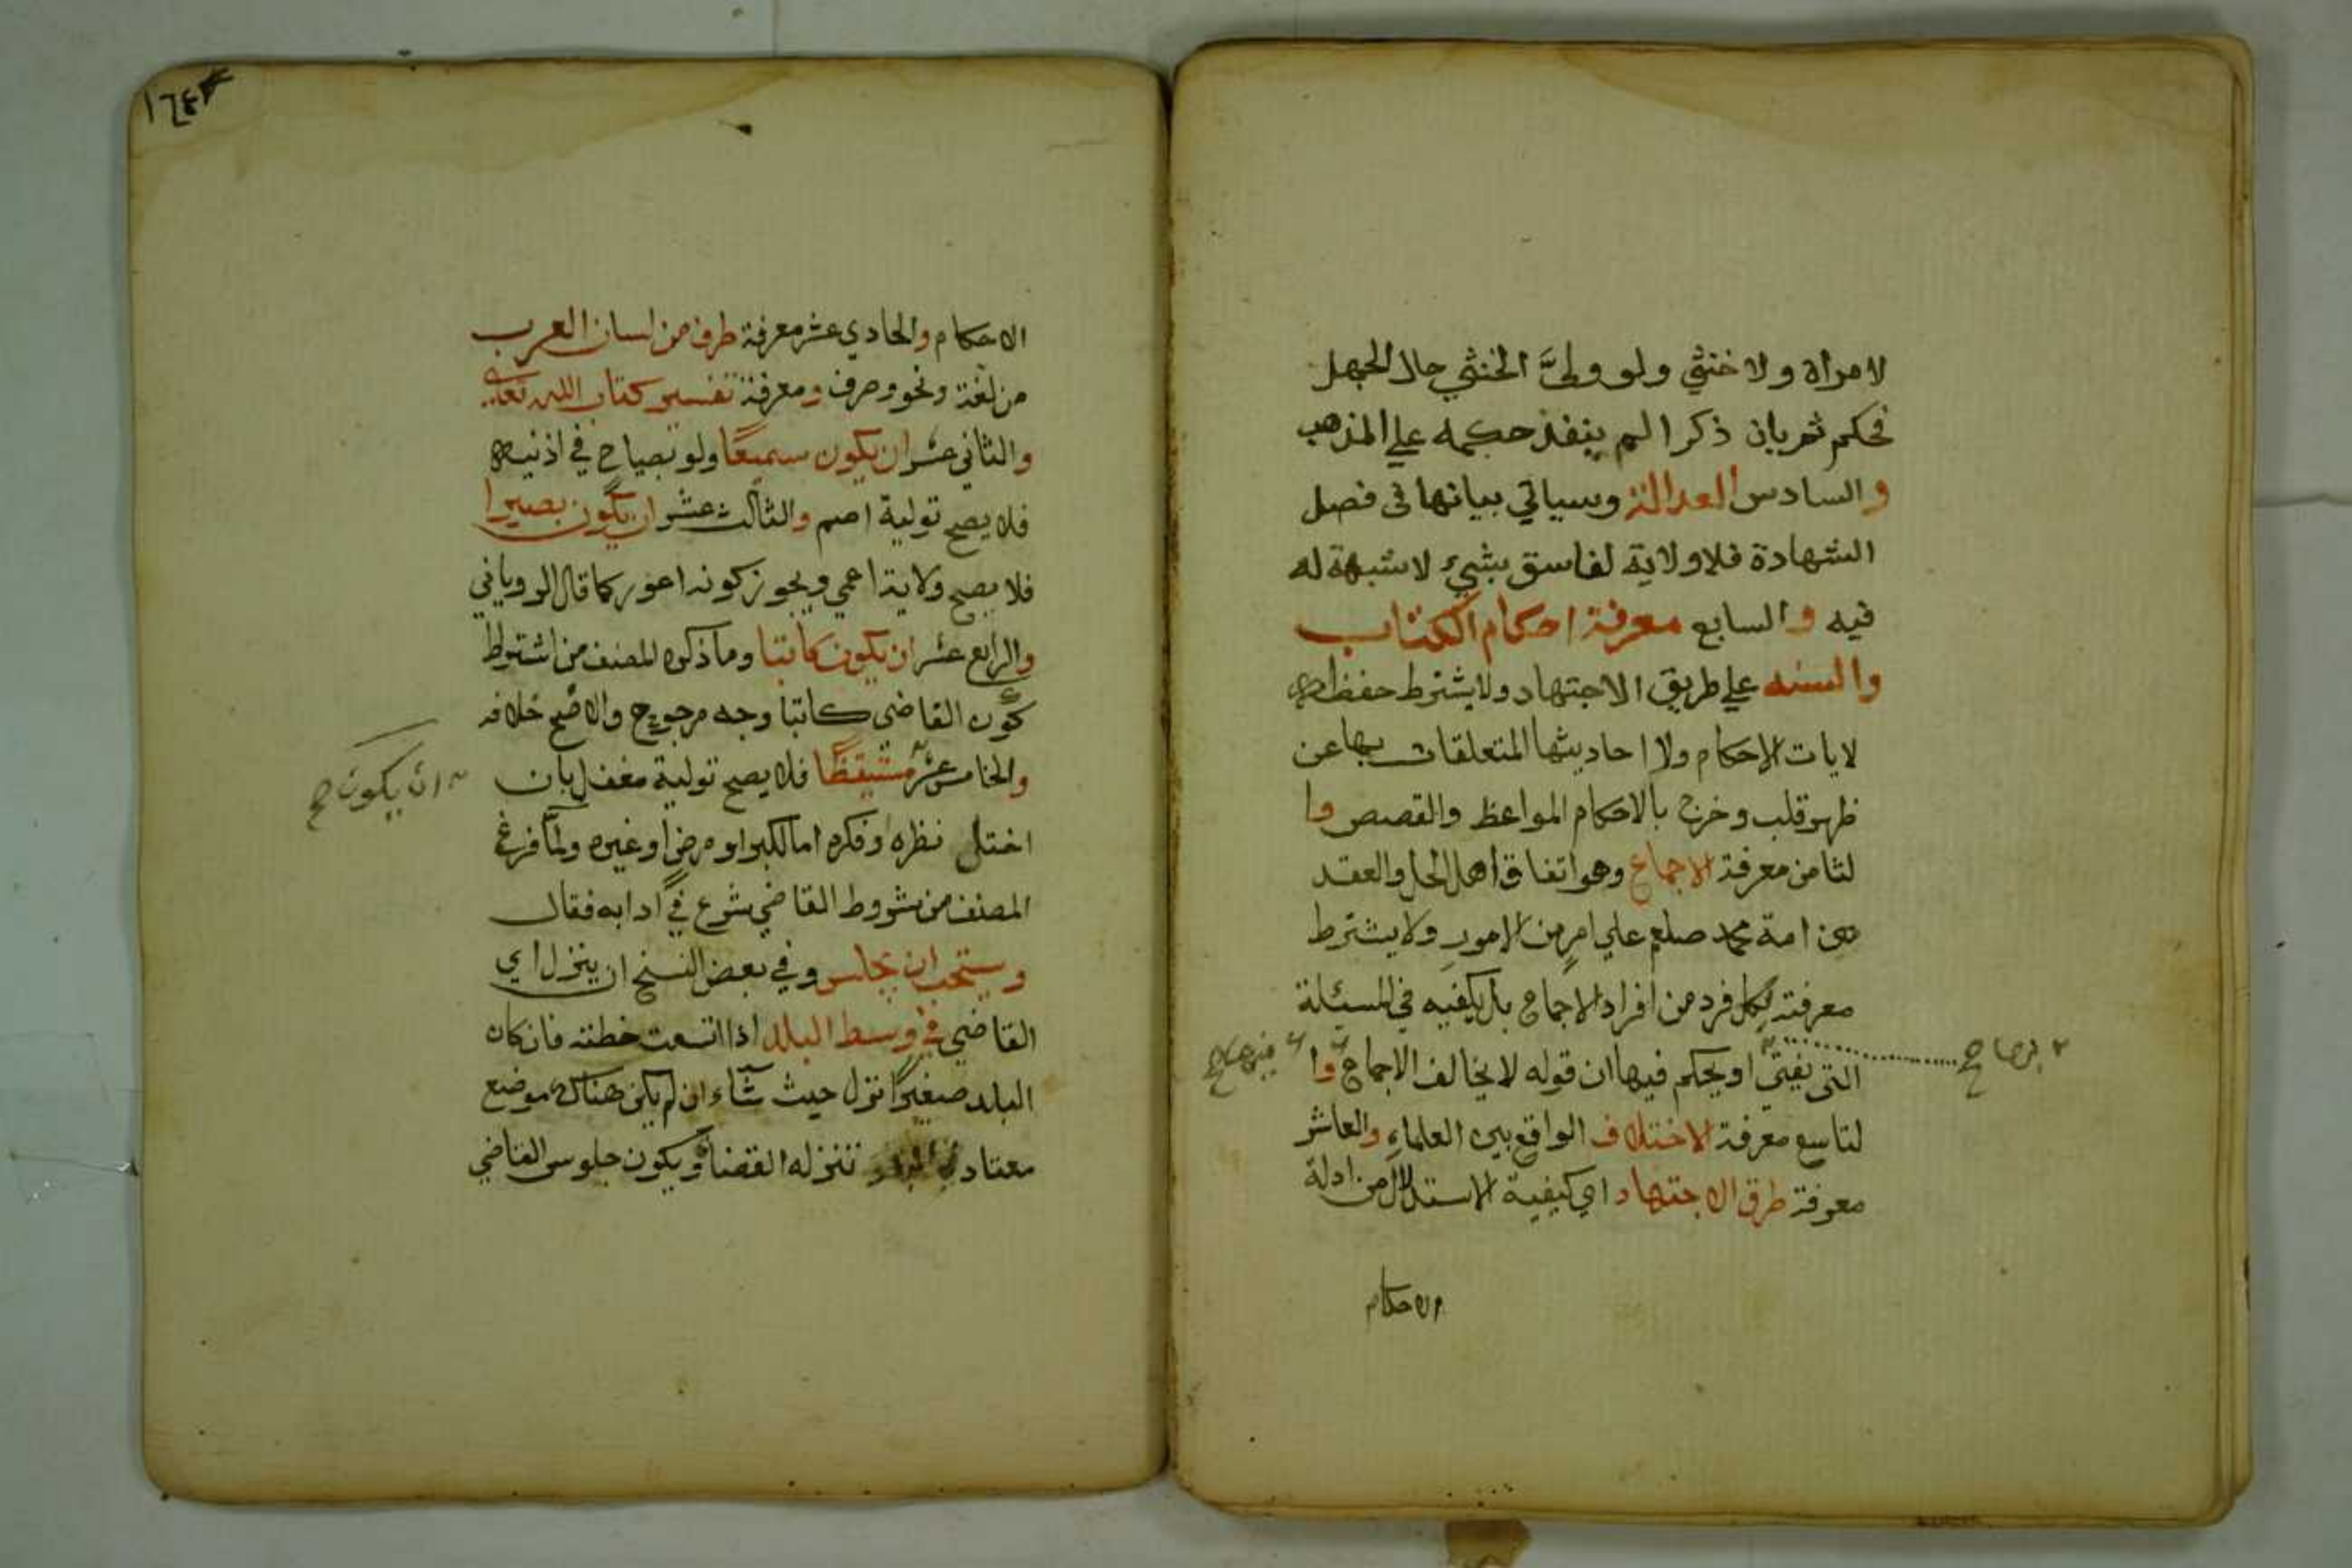 لامراة ولا خنثي ولو وليَّ الخنثي حال الجهل
فحكم ثم بان ذكرا لم ينفذ حكمه علي المذهب
والسادس العدالة وسياتي بيانها في فصل
الشهادة فلا ولاية لفاسق بشيء لا شبهة له
فيه والسابع معرفة احكام الكتاب
والسنه علي طريق الاجتهاد ولا يشترط حفظه
لايات الاحكام ولا احاديثها المتعلقات بها عن
ظهر قلب وخرج بالاحكام المواعظ والقصص وا
لثامن معرفة الاجماع وهو اتفاق اهل الحل والعقد
من امة محمد صلعم علي امر من الامور ولا يشترط
معرفته لكل فرد من افراد الاجماع بل يكفيه في المسئلة
التي يفتي او يحكم فيها ان قوله لا يخالف الاجماع وا
بها صح
فيها صح
لتاسع معرفة الاختلاف الواقع بين العلماء والعاشر
معرفة طرق الاجتهاد اي كيفية الاستدلال من ادلة
الاحكام
١٦٤
الاحكام والحادي عشر معرفة طرف من لسان العرب
من لغة ونحو وصرف ومعرفة تفسير كتاب الله تعالي
والثاني عشر ان يكون سميعًا ولو بصياح في اذنيه
فلا يصح تولية اصم والثالث عشر ان يكون بصيرا
فلا يصح ولاية اعمي ويجوز كونه اعور كما قال الروياني
والرابع عشر ان يكون كاتبا وما ذكره المصنف من اشتراط
كون القاضي كاتبا وجه مرجوح والاصح خلافه
والخامس عشر مستيقظًا فلا يصح تولية مغفل بان
ان يكون صح
اختل نظره او فكره اما لكبر او مرض او غيره ولما فرغ
المصنف من شروط القاضي شرع في ادابه فقال
ويستحب ان يجلس وفي بعض النسخ ان ينزل اي
القاضي في وسط البلد اذا اتسعت خطته فان كان
البلد صغيرًا نزل حيث شاء ان لم يكن هناك موضع
معتاد تنزله القضاة ويكون جلوس القاضي